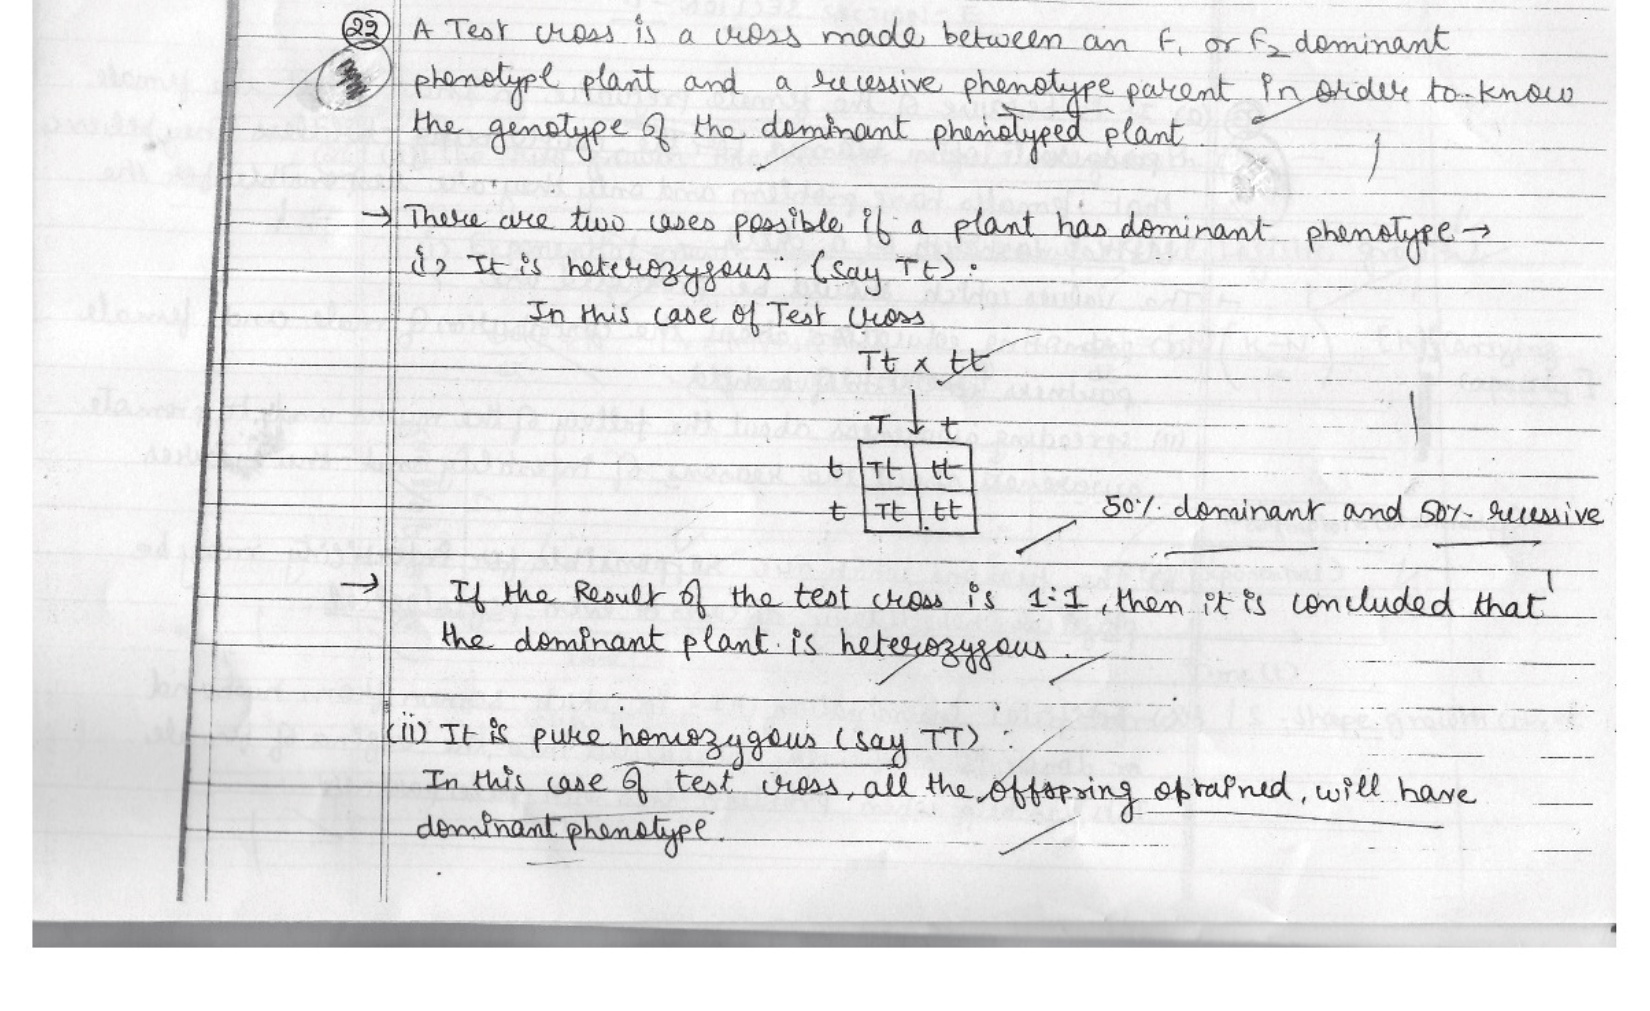 22 A Test cross is a cross made between an F1 or F2 dominant
phenotype plant and a recessive phenotype parent in order to know
the genotype of the dominant phenotyped plant.
→ There are two cases possible if a plant has dominant phenotype →
i) It is heterozygous (say Tt) :
In this case of Test cross
Tt x tt
↓
T t
t Tt tt
t Tt tt
50% dominant and 50% recessive
→ If the Result of the test cross is 1:1, then it is concluded that
the dominant plant is heterozygous.
(ii) It is pure homozygous (say TT) :
In this case of test cross, all the offspring obtained, will have
dominant phenotype.